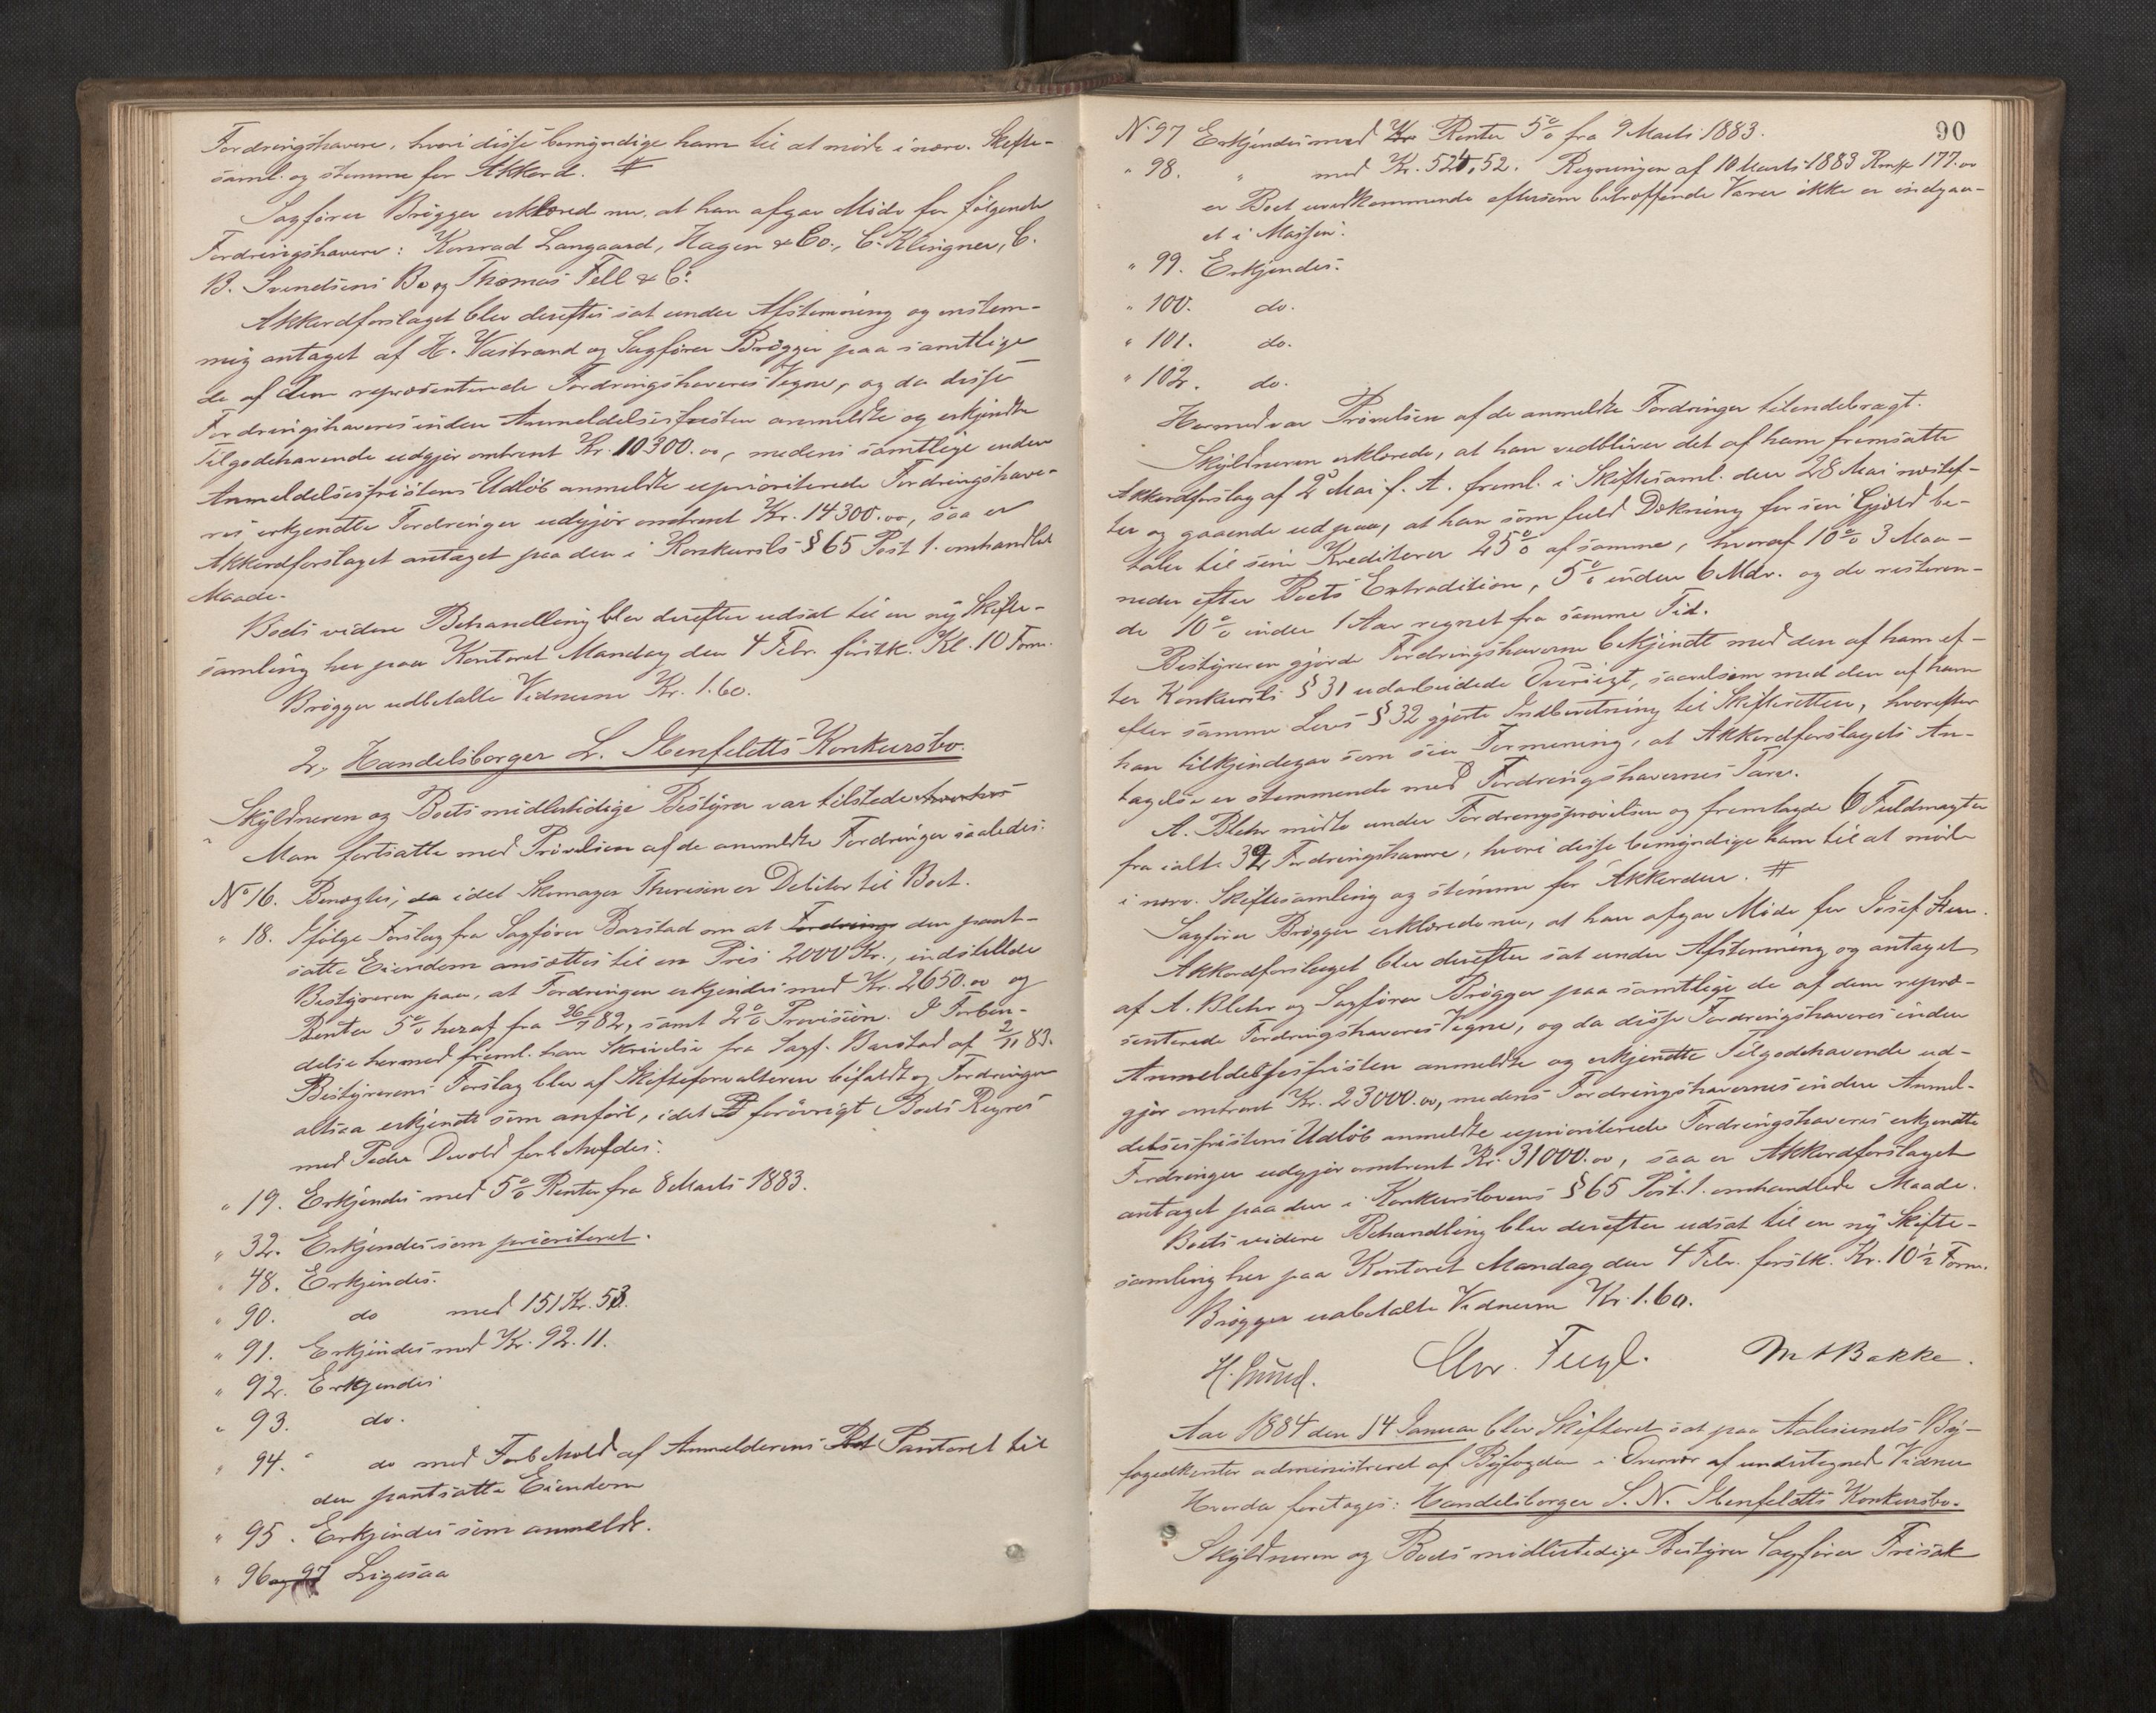 Fordringshavere, hvori disse bemyndige ham til at møde i nærv. Skifte-
saml. og stemme for Akkord. #
Sagfører Brøgger erklæred nu, at han afgav Møde for følgende
Fordringshavere: Konrad Langaard, Hagen & Co., C. Klingner, C.
B. Svendsens Bo og Thomas Fell & Co.
Akkordforslaget blev derefter sat under Afstemning og enstem-
mig antaget af H. Vastrand og Sagfører Brøgger paa samtlige
de af dem repræsenterede Fordringshaveres Vegne, og da disse
Fordringshaveres inden Anmeldelsesfristen anmeldte og erkjendte
Tilgodehavende udgjør omtrent Kr. 10300.00, medens samtlige inden
Anmeldelsesfristens Udløb anmeldte uprioriterede Fordringshave-
res erkjendte Fordringer udgjør omtrent Kr. 14300.00, saa er
Akkordforslaget antaget paa den i Konkursls § 65 Post 1. omhandlet
Maade.
Boets videre Behandling blev derefter udsat til en ny Skifte-
samling her paa Kontoret Mandag den 4 Febr. førstk. Kl. 10 Form.
Brøgger udbetalte Vidnerne Kr. 1.60.
2, Handelsborger L. Ibenfeldts Konkursbo.
Skyldneren og Boets midlertidige Bestyrer var tilstede
Man fortsatte med Prøvelsen af de anmeldte Fordringer saaledes:
No 16. Benægtes, da idet Skomager Theresen er Debitor til Boet.
" 18. Ifølge Forslag fra Sagfører Barstad om at Fordringe den pant-
satte Eiendom ansættes til en Pris 2000 Kr., indstillede
Bestyreren paa, at Fordringen erkjendes med Kr. 2650.00 og
Renter 5% heraf fra 26/7 82, samt 2% Provision. I Forbin-
delse hermed freml. han Skrivelse fra Sagf. Barstad af 2/11 83.
Bestyrerens Forslag blev af Skifteforvalteren bifaldt og Fordringen
altsaa erkjendt som anført, idet forøvrigt Boets Regres
med Peder Devold forbeholdes.
" 19. Erkjendes med 5% Renter fra 8 Marts 1883.
" 32. Erkjendes som prioriteret.
" 48. Erkjendes.
" 90. do med 151 Kr. 53.
" 91. Erkjendes med Kr. 92.11.
" 92. Erkjendes
" 93. do.
" 94. " do med Forbehold af Anmelderens Panteret til
den pantsatte Eiendom
" 95. Erkjendes som anmeldt.
" 96 og 97 Ligesaa
90
No 97 Erkjendes med Kr Renter 5% fra 9 Marts 1883.
" 98. " med Kr. 524,52. Regningen af 10 Marts 1883 177.00
er Boet uvedkommende eftersom betræffende Varer ikke er indgaa-
et i Massen.
" 99. Erkjendes.
" 100. do.
" 101. do.
" 102. do.
Hermed var Prøvelsen af de anmeldte Fordringer tilendebragt.
Skyldneren erklærede, at han vedbliver det af ham fremsatte
Akkordforslag af 2 Mai f. A. freml. i Skiftesaml. den 28 Mai næstef-
ter og gaaende ud paa, at han som fuld Dækning for sin Gjæld be-
taler til sine Kreditorer 25% af samme, hvoraf 10% 3 Maa-
neder efter Boets Extradition, 5% inden 6 Mdr. og de resteren-
de 10% inden 1 Aar regnet fra samme Tid.
Bestyreren gjorde Fordringshaverne bekjendt med den af ham ef-
ter Konkursls § 31 udarbeidede Oversigt, saavelsom med den af ham
efter samme Lovs § 32 gjorte Indberetning til Skifteretten, hvorefter
han tilkjendegav som sin Formening, at Akkordforslagets An-
tagelse er stemmende med Fordringshavernes Tarv.
A. Blehr mødte under Fordringsprøvelsen og fremlagde 6 Fuldmagter
fra ialt Fordringshavere, hvori disse bemyndige ham til at møde
i nærv. Skiftesamling og stemme for Akkorden. #
Sagfører Brøgger erklærede nu, at han afgav Møde for Josef
Akkordforslaget blev derefter sat under Afstemning og antaget
af A. Blehr og Sagfører Brøgger paa samtlige de af dem repræ-
senterede Fordringshaveres Vegne, og da disse Fordringshaveres inden
Anmeldelsesfristen anmeldte og erkjendte Tilgodehavende ud-
gjør omtrent Kr. 23000.00, medens Fordringshavernes inden Anmel-
delsesfristens Udløb anmeldte uprioriterede Fordringshaveres erkjendte
Fordringer udgjør omtrent Kr. 31000.00, saa er Akkordforslaget
antaget paa den i Konkurslovens § 65 Post. 1. omhandlede Maade.
Boets videre Behandling blev derefter udsat til en ny Skifte-
samling her paa Kontoret Mandag den 4 Febr. førstk. Kl. 10 1/2 Form.
Brøgger udbetalte Vidnerne Kr. 1.60.
Chr. Fugl. M A Bakke.
Aar 1884 den 14 Januar blev Skifteret sat paa Aalesunds By-
fogedkontor administreret af Byfogden i Overvær af undertegned Vidner
Hvorda foretages: Handelsborger S. N. Ibenfeldts Konkursbo.
Skyldneren og Boets midlertidige Bestyrer Sagfører Frisak